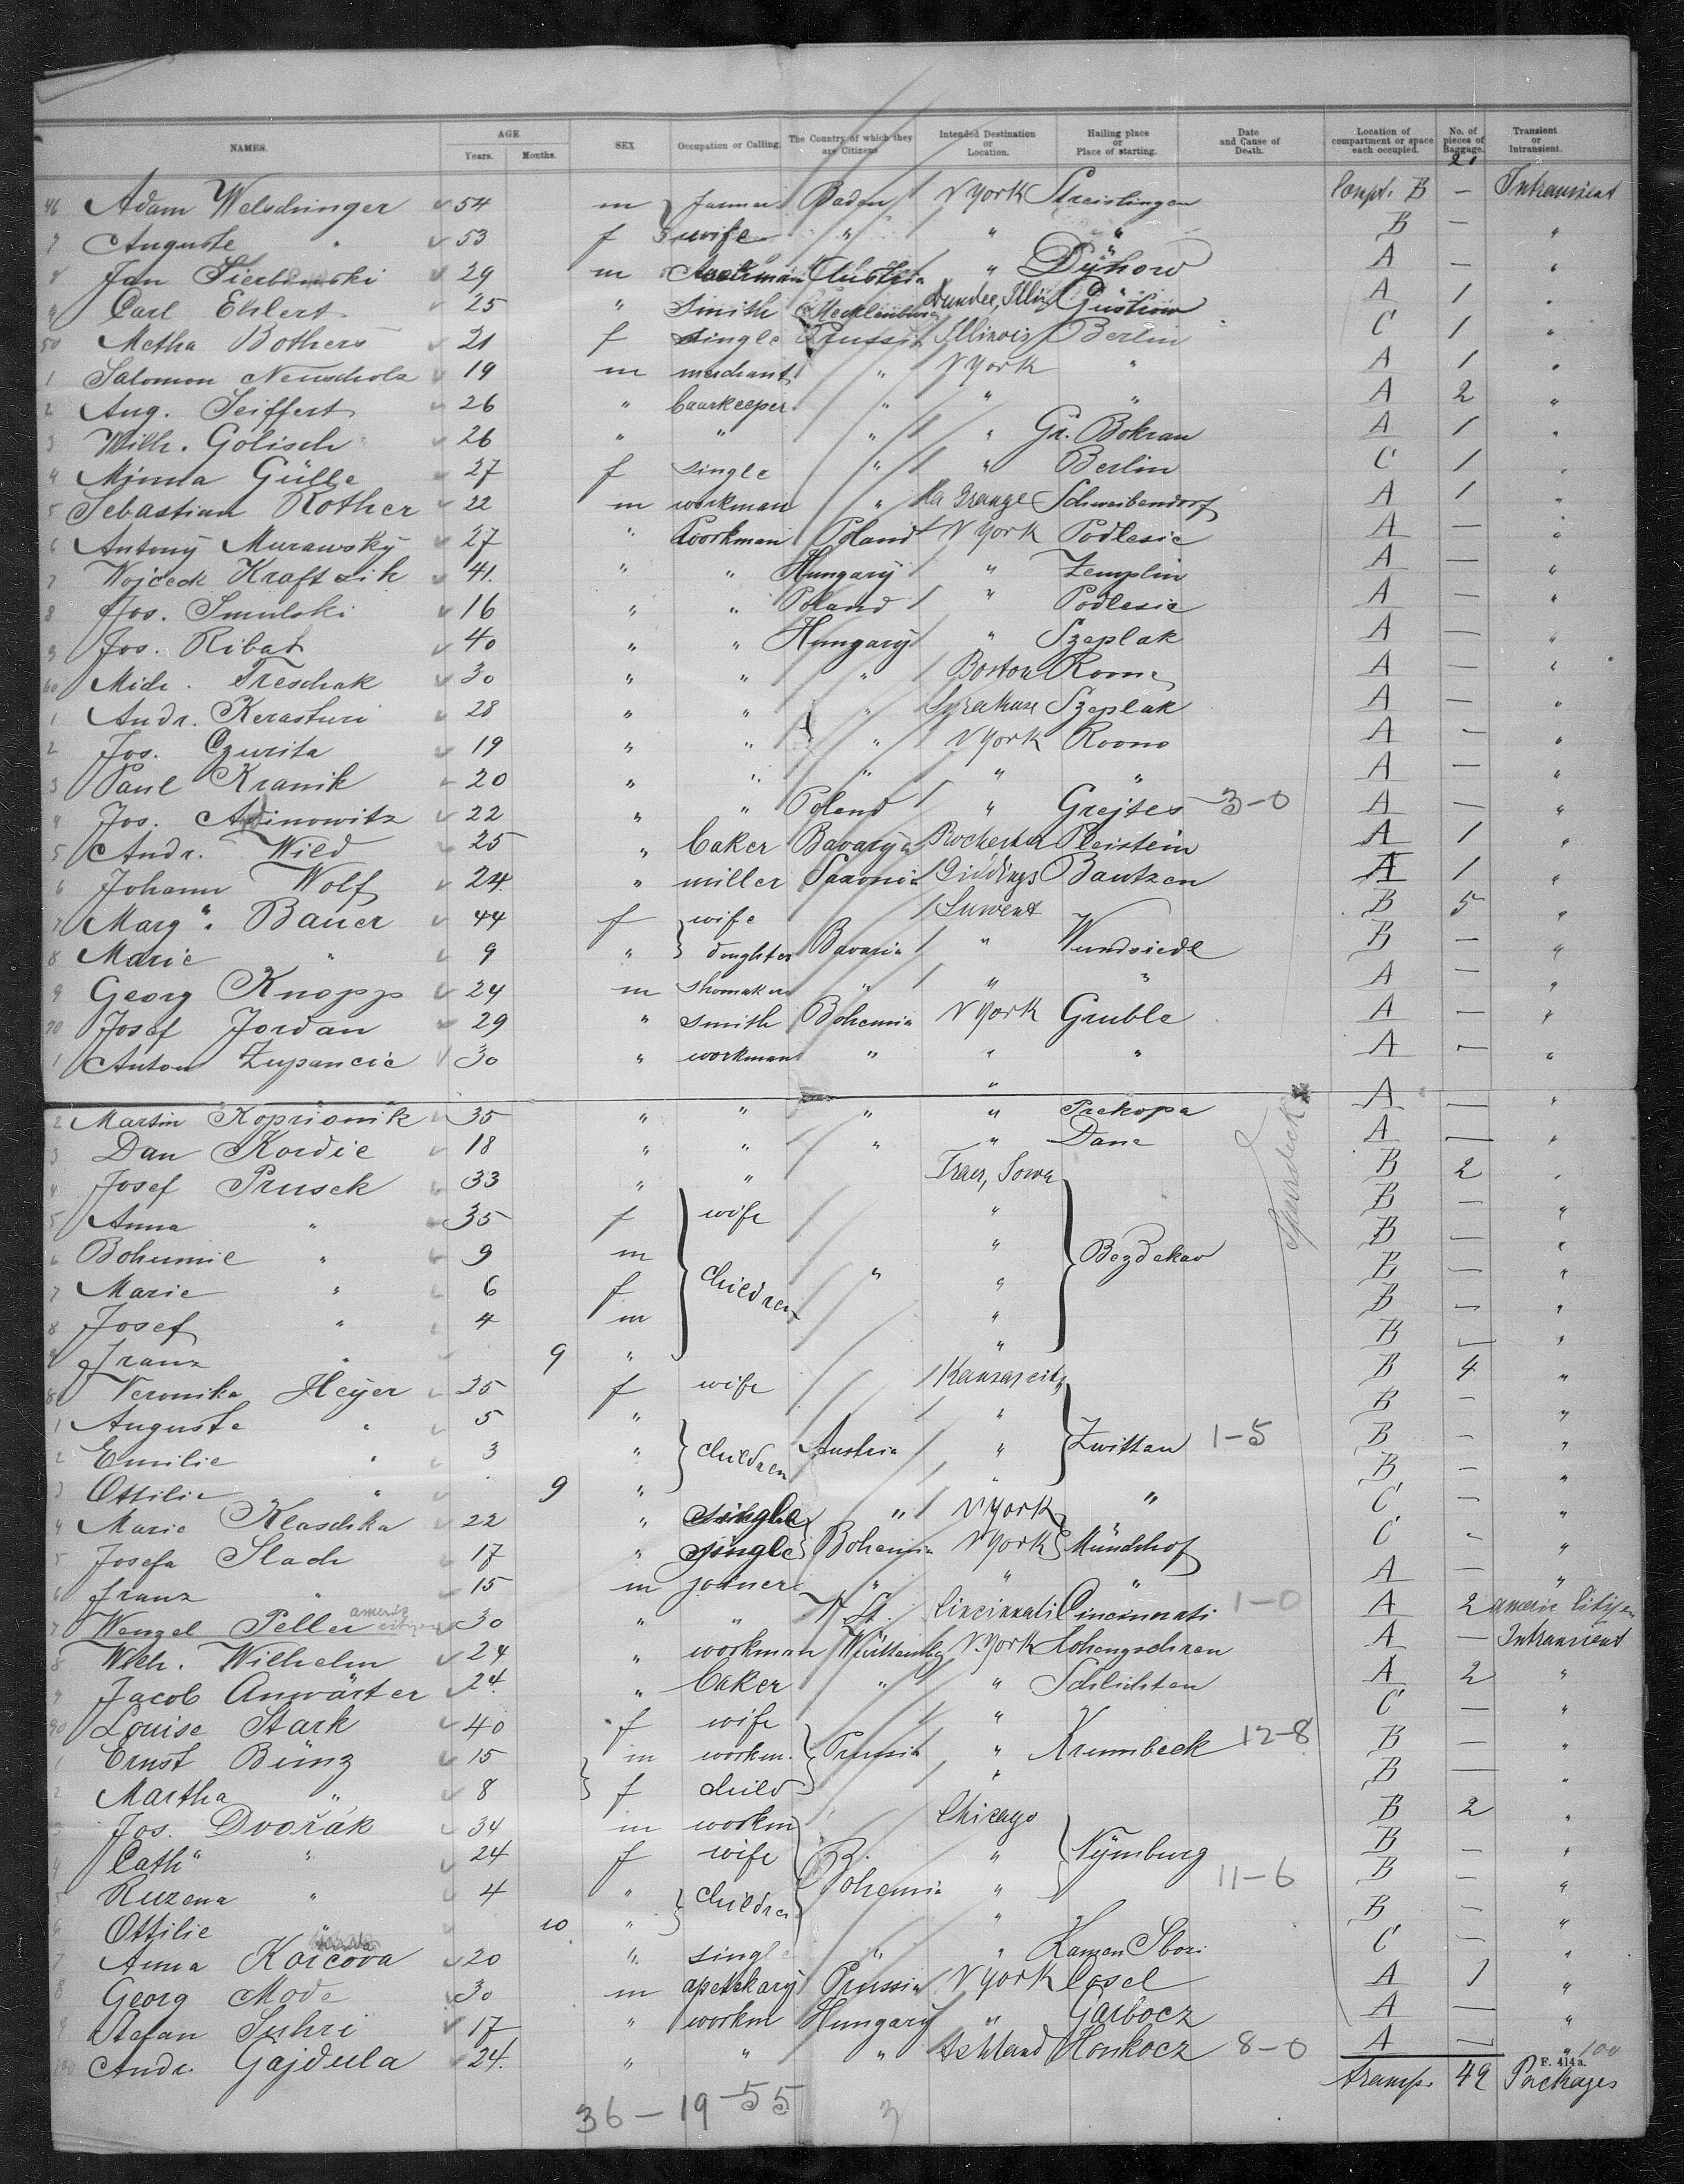 NAMES. AGE Years. Months. SEX Occupation or Calling. The Country of which they are Citizens Intended Destination or Location. Hailing place or Place of starting. Date and Cause of Death. Location of compartment or space each occupied. No. of pieces of Baggage. Transient or Intransient.
21
46 Adam Welschinger 54 m farmer Baden N York Compt. B — Intransient
7 Auguste " 53 f wife " " " B — "
8 Jan 29 m Austria " Dÿnow A — "
9 Carl Ehlert 25 " Smith Mecklenburg Dundee, Illin Güstrow A 1 "
50 Metha Bothers 21 f single Prussia Illinois Berlin C 1 "
1 Salomon Neuscholz 19 m merchant " N York " A 1 "
2 Aug. Seiffert 26 " baarkeeper " " " A 2 "
3 Wilh. Golisch 26 " " " " Gr. Bokrau A 1 "
4 Minna Gülle 27 f single " " Berlin C 1 "
5 Sebastian Rother 22 m workman " La Grange Schreibendorf A 1 "
6 Antonÿ Murawskÿ 27 " workman Poland N York Podlesie A — "
7 Wojceck Kraftzik 41. " " Hungarÿ " Zemplin A — "
8 Jos. Smulski 16 " " Poland " Podlesie A — "
9 Jos. Ribat 40 " " Hungarÿ " Szeplak A — "
60 Mich. Treschak 30 " " " Boston A — "
1 Andr. Kerasturi 28 " " " Syrakuse Szeplak A — "
2 Jos. Czurita 19 " " " N York Roono A — "
3 Paul Kranik 20 " " " " " A — "
4 Jos. 22 " " Poland " Grejtes 3-0 A — "
5 Andr. Wild 25 " baker Bavaryia Rochester Pleistein A 1 "
6 Johann Wolf 24 " miller Saxonia Giddings Bautzen A 1 "
7 Marg". Bauer 44 f wife B 5 "
8 Marie " 9 " doughter Bavaria " Wundsiedl B — "
9 Georg Knopp 24 m shomaker " " " A — "
70 Josef Jordan 29 " smith Bohemia N York Gruble A — "
1 Anton Zupancic 30 " workman " " " A — "
"
2 Martin Koprionik 35 " " " " Prekopa A — "
3 Dan Kordic 18 " " " " Dane A — "
4 Josef Prusek 33 " " Traer, Iowa B 2 "
5 Anna " 35 f wife " B — "
6 Bohumil " 9 m " Bezdekav B — "
7 Marie " 6 f children " " B — "
8 Josef " 4 m " B — "
9 Franz " 9 " " B — "
80 Veronika Heÿer 25 f wife Kansas city B 4 "
1 Auguste " 5 " " B — "
2 Emilie " 3 " children Austria " Zwittau 1-5 B — "
3 Ottilie " 9 " " B — "
4 Marie Klaschka 22 " single " N York " C — "
5 Josefa Slach 17 " single Bohemia N York Mündshof C — "
6 Franz " 15 m joiner " " " A — "
7 Wenzel Peller americ citizen 30 " " Cincinnati Cincinnati 1-0 A 2 americ Citizen
8 Wilh. Wilhelm 24 " workman Württembg N. York A — Intransient
9 Jacob Anwärter 24 " baker " " Schlichten A 2 "
90 Louise Stark 40 f wife " C — "
1 Ernst Bünz 15 m workm. Prussia " Krumbeck 12-8 B — "
2 Martha " 8 f child " B — "
3 Jos. Dvořák 34 m workm Chicago B 2 "
4 Cath" " 24 f wife " Nÿmburg B — "
5 Ruzena " 4 " children Bohemia " 11-6 B — "
6 Ottilie " 10 " " B — "
7 Anna Korcova 20 " single " " Kamen Sbozi C — "
8 Georg Mode 30 m apetekarÿ Prussia N York Cosel A 1 "
9 Stefan Suhri 17 " workm Hungary " Garbocz A — "
100 Andr. Gajdula 24. " " " Ashland Honkocz 8-0 A — " 100
F. 414 a.
49 Packages
36 – 19 – 55
3